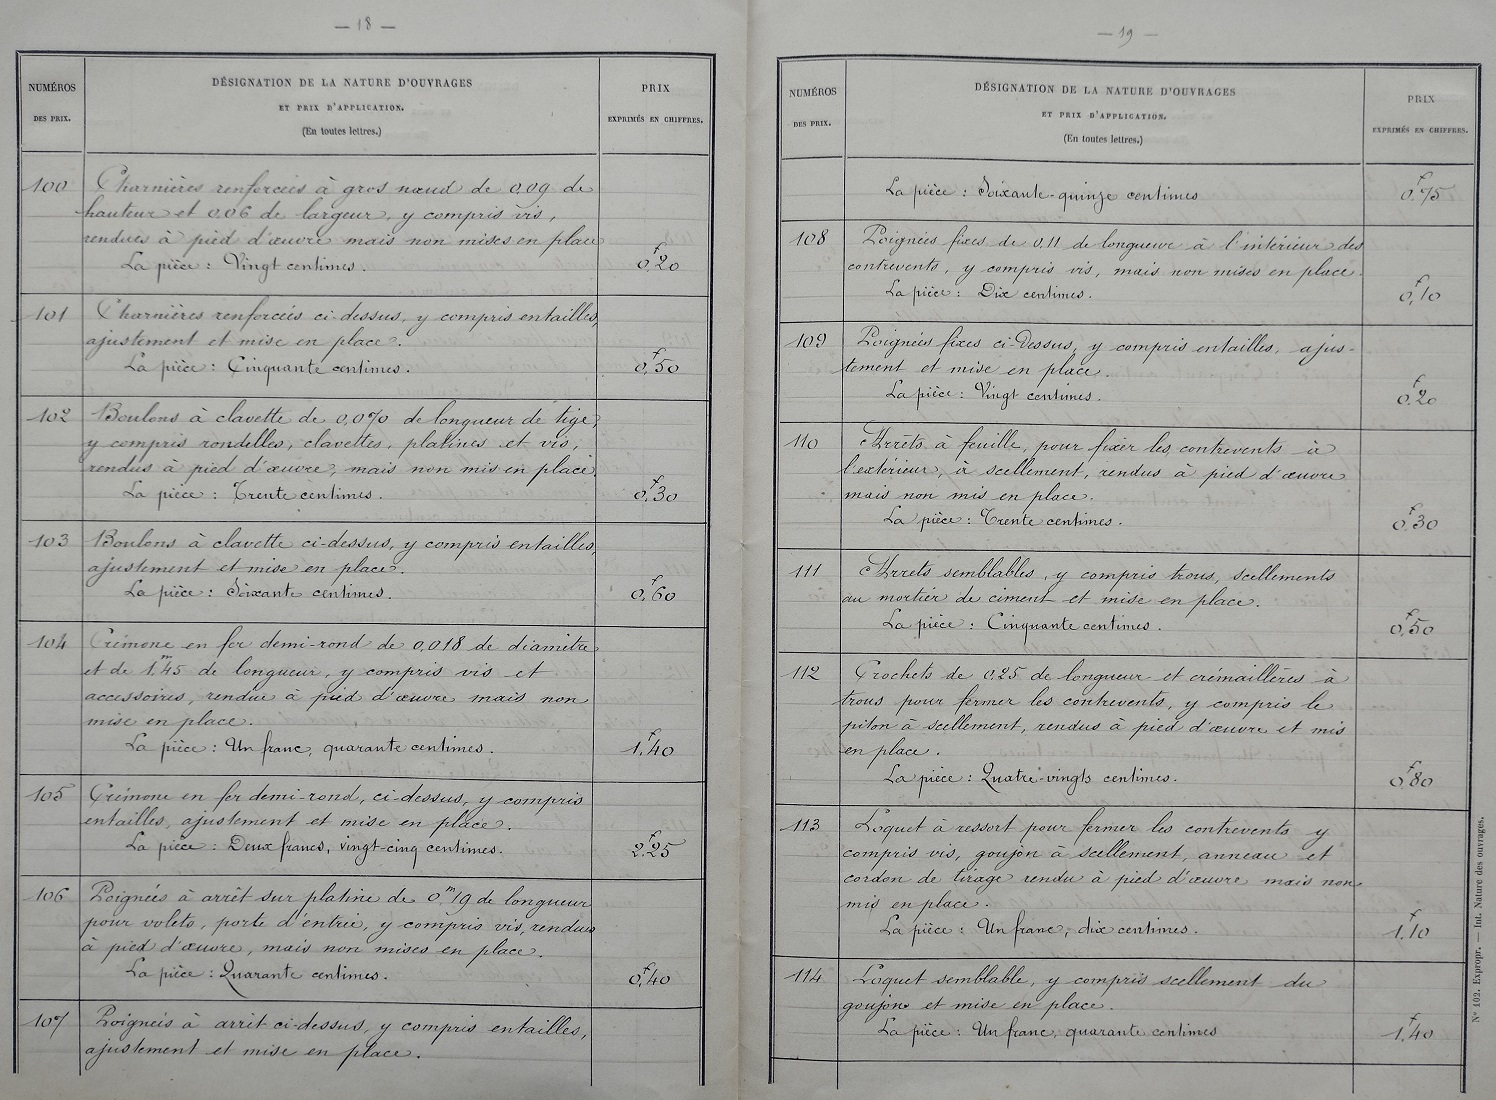 — 18 —
NUMÉROS
DES PRIX.
DÉSIGNATION DE LA NATURE D'OUVRAGES
ET PRIX D'APPLICATION.
(En toutes lettres.)
PRIX
EXPRIMÉS EN CHIFFRES.
100 Charnières renforcées à gros nœud de 0,09 de
hauteur et 0,06 de largeur, y compris vis,
rendues à pied d'œuvre mais non mises en place
La pièce : Vingt centimes. 0f,20
101 Charnières renforcées ci-dessus, y compris entailles,
ajustement et mise en place.
La pièce : Cinquante centimes. 0f,50
102 Boulons à clavette de 0,07 de longueur de tige,
y compris rondelles, clavettes, platines et vis,
rendus à pied d'œuvre, mais non mis en place
La pièce : Trente centimes. 0f,30
103 Boulons à clavette ci-dessus, y compris entailles,
ajustement et mise en place.
La pièce : Soixante centimes. 0f,60
104 Crémone en fer demi-rond de 0,018 de diamètre
et de 1m,45 de longueur, y compris vis et
accessoires, rendue à pied d'œuvre mais non
mise en place.
La pièce : Un franc, quarante centimes. 1f,40
105 Crémone en fer demi-rond, ci-dessus, y compris
entailles, ajustement et mise en place.
La pièce : Deux francs, vingt-cinq centimes. 2f,25
106 Poignées à arrêt sur platine de 0m,19 de longueur
pour volets, porte d'entrée, y compris vis, rendues
à pied d'œuvre, mais non mises en place.
La pièce : Quarante centimes. 0f,40
107 Poignées à arrêt ci-dessus, y compris entailles,
ajustement et mise en place.
— 19 —
NUMÉROS
DES PRIX.
DÉSIGNATION DE LA NATURE D'OUVRAGES
ET PRIX D'APPLICATION.
(En toutes lettres.)
PRIX
EXPRIMÉS EN CHIFFRES.
La pièce : Soixante-quinze centimes 0f,75
108 Poignées fixes de 0,11 de longueur à l'intérieur des
contrevents, y compris vis, mais non mises en place.
La pièce : Dix centimes. 0f,10
109 Poignées fixes ci-dessus, y compris entailles, ajus-
tement et mise en place.
La pièce : Vingt centimes. 0f,20
110 Arrêts à feuille, pour fixer les contrevents à
l'extérieur, à scellement, rendus à pied d'œuvre
mais non mis en place.
La pièce : Trente centimes. 0f,30
111 Arrêts semblables, y compris trous, scellements
au mortier de ciment et mise en place.
La pièce : Cinquante centimes. 0f,50
112 Crochets de 0,25 de longueur et crémaillères à
trous pour fermer les contrevents, y compris le
piton à scellement, rendus à pied d'œuvre et mis
en place.
La pièce : Quatre-vingts centimes. 0f,80
113 Loquet à ressort pour fermer les contrevents y
compris vis, goujon à scellement, anneau et
cordon de tirage rendu à pied d'œuvre mais non
mis en place.
La pièce : Un franc, dix centimes. 1f,10
114 Loquet semblable, y compris scellement du
goujon et mise en place.
La pièce : Un franc, quarante centimes 1f,40
N° 102. Expropr. — Int. Nature des ouvrages.